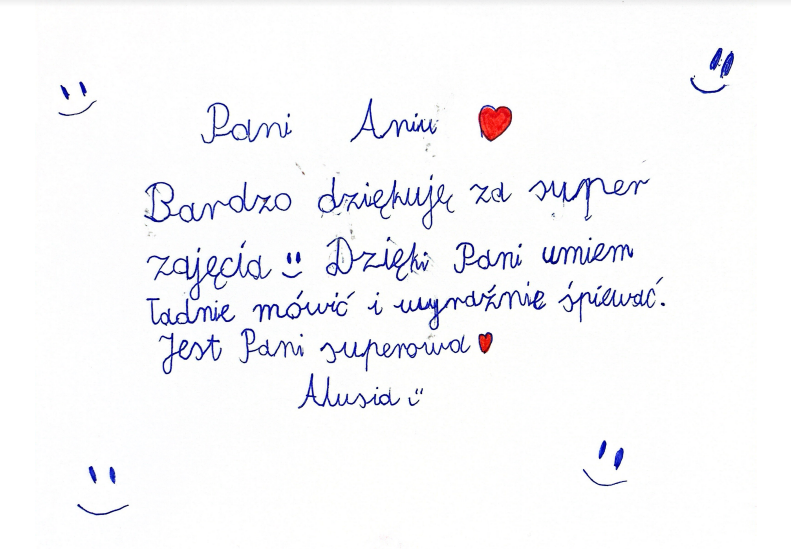 Pani Aniu ❤
Bardzo dziękuję za super
zajęcia Dzięki Pani umiem
ładnie mówić i wyraźnie śpiewać.
Jest Pani superowa ❤
Alusia :)